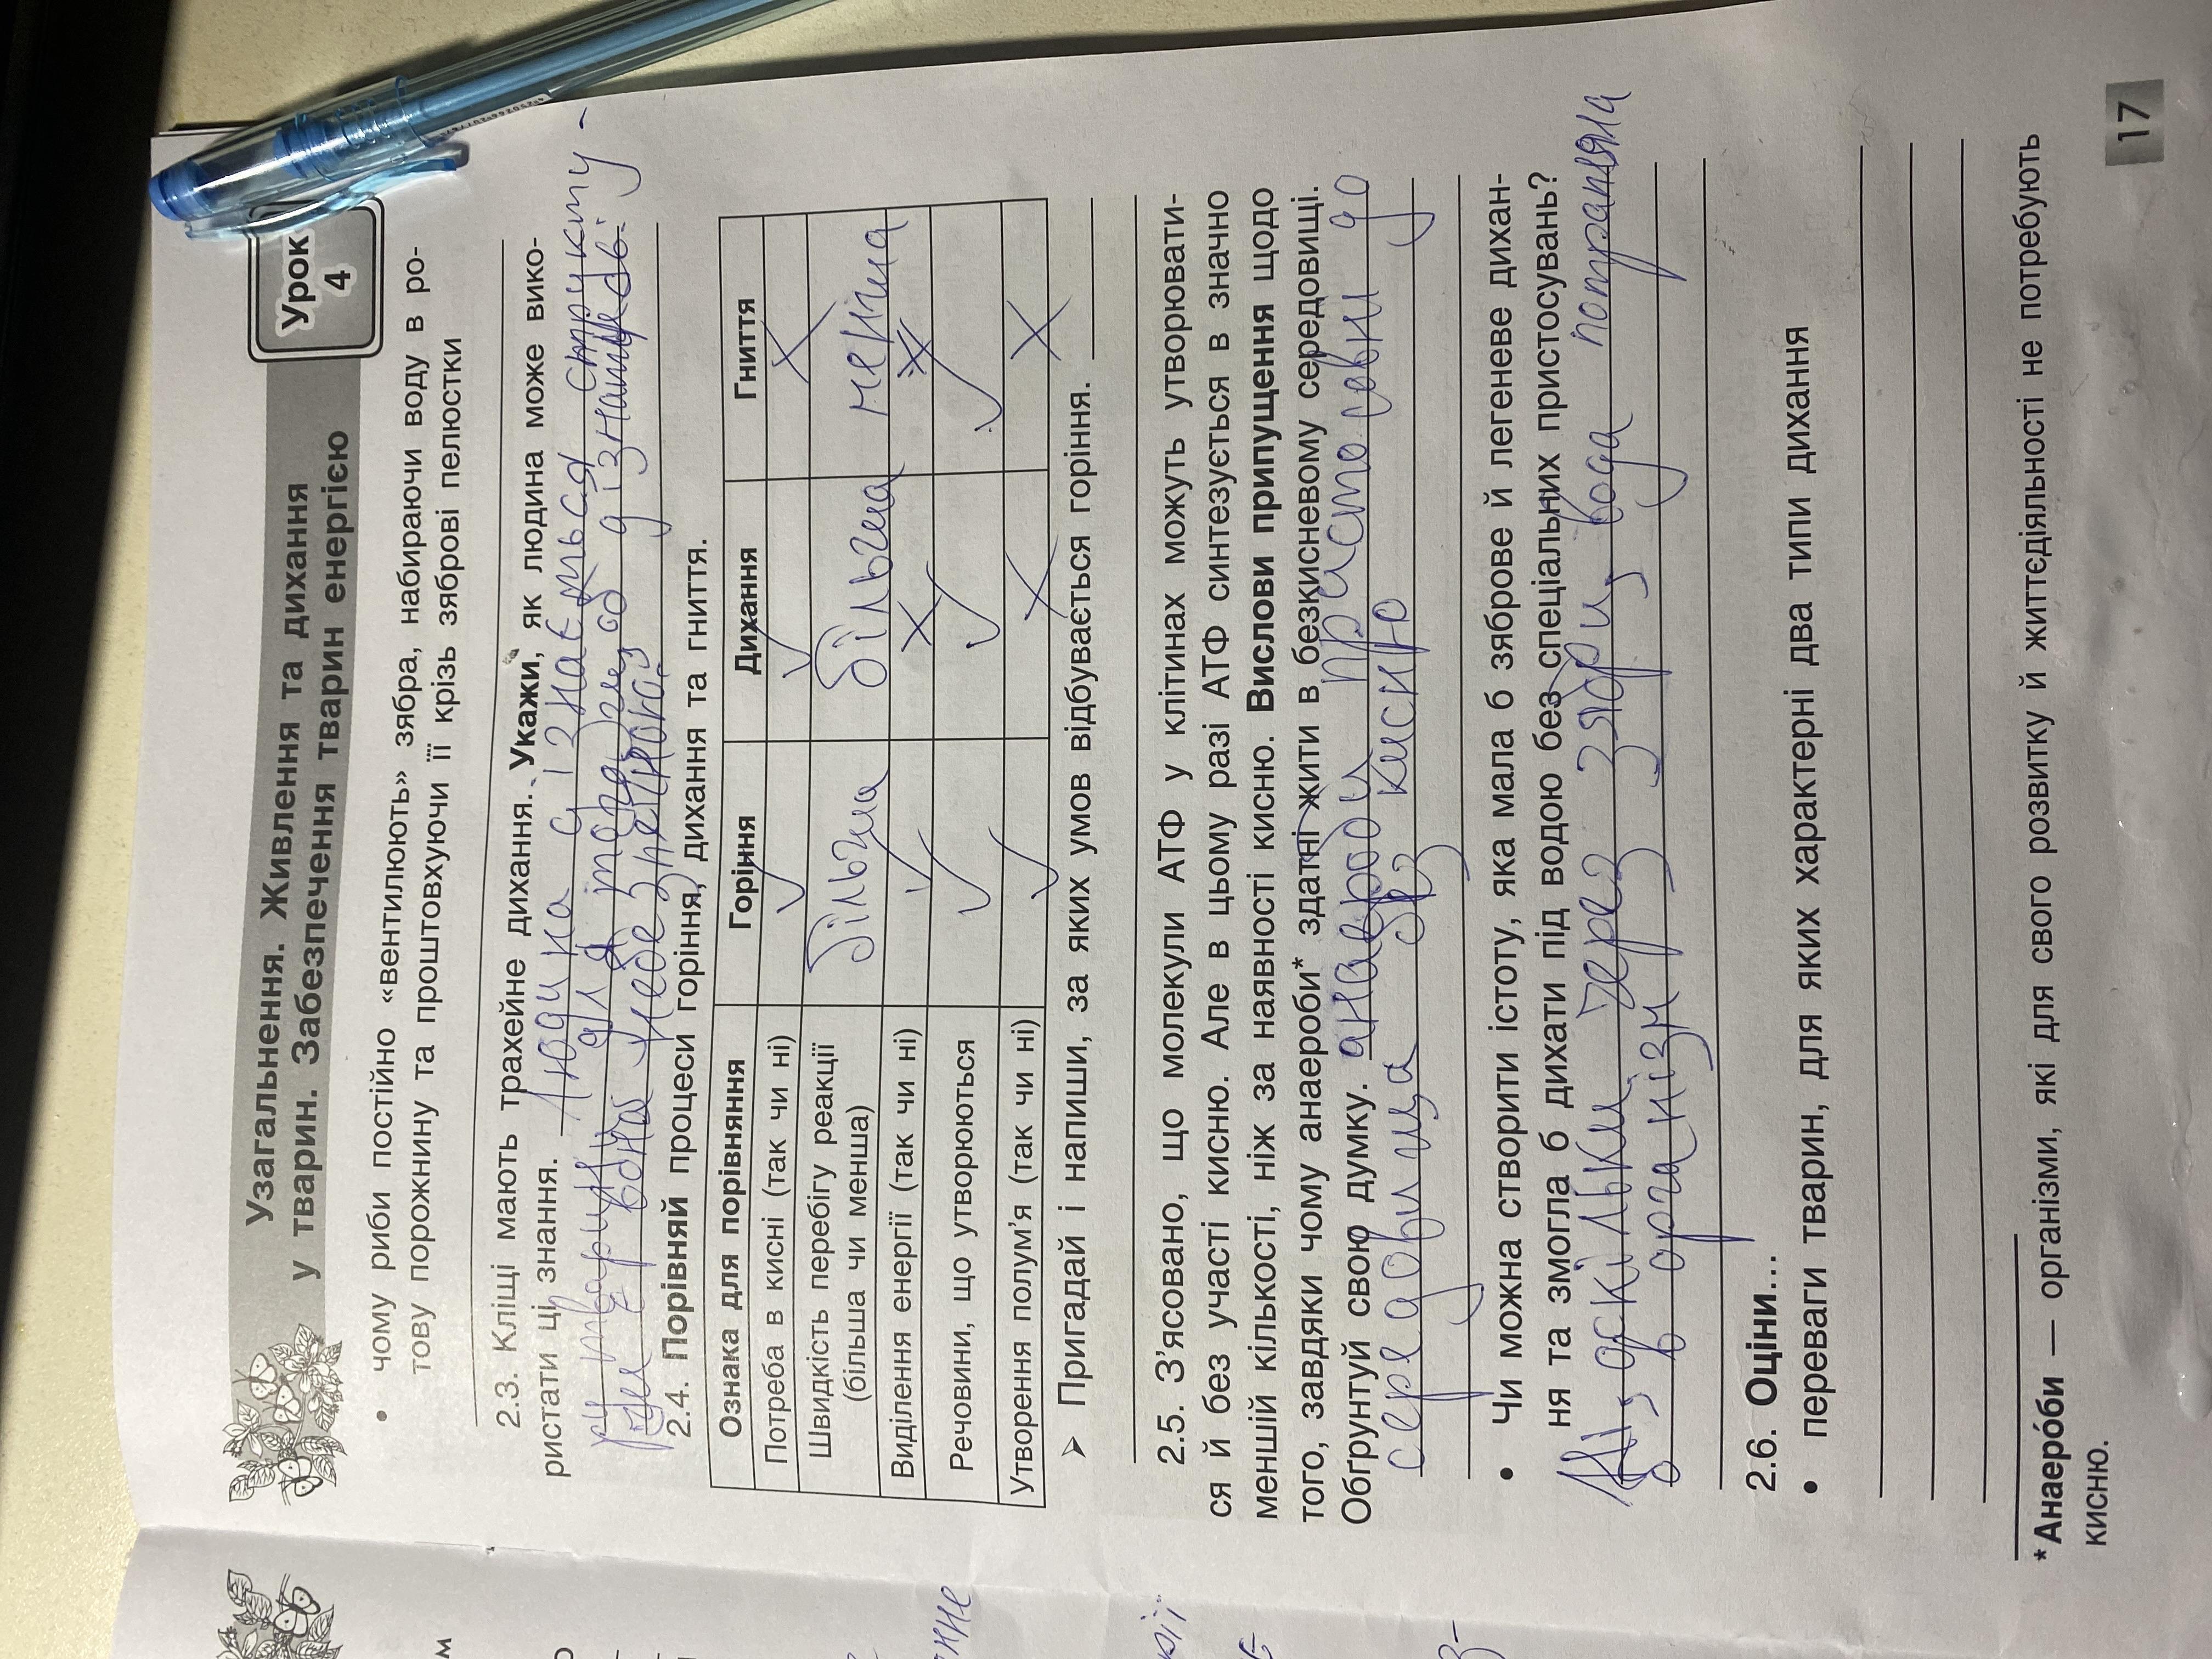 Урок
4
Узагальнення. Живлення та дихання
у тварин. Забезпечення тварин енергією
• чому риби постійно «вентилюють» зябра, набираючи воду в ро-
тову порожнину та проштовхуючи її крізь зяброві пелюстки
2.3. Кліщі мають трахейне дихання. Укажи, як людина може вико-
ристати ці знання. Людина дізнається структу-
ру для щоб дізнатися
чи вона небезпечна.
2.4. Порівняй процеси горіння, дихання та гниття.
Ознака для порівняння Горіння Дихання Гниття
Потреба в кисні (так чи ні) ✓ ✓ ✗
Швидкість перебігу реакції
(більша чи менша) більша більша менша
Виділення енергії (так чи ні) ✓ ✗ ✗
Речовини, що утворюються ✓ ✓ ✓
Утворення полум'я (так чи ні) ✓ ✗ ✗
➤ Пригадай і напиши, за яких умов відбувається горіння.
2.5. З'ясовано, що молекули АТФ у клітинах можуть утворювати-
ся й без участі кисню. Але в цьому разі АТФ синтезується в значно
меншій кількості, ніж за наявності кисню. Вислови припущення щодо
того, завдяки чому анаероби* здатні жити в безкисневому середовищі.
Обґрунтуй свою думку. анаероби пристосовни до
середовища без кисню
• Чи можна створити істоту, яка мала б зяброве й легеневе дихан-
ня та змогла б дихати під водою без спеціальних пристосувань?
Ні, оскільки через зябри, вода потрапляла
в організм
2.6. Оціни...
• переваги тварин, для яких характерні два типи дихання
*Анаеро́би — організми, які для свого розвитку й життєдіяльності не потребують
кисню.
17
м